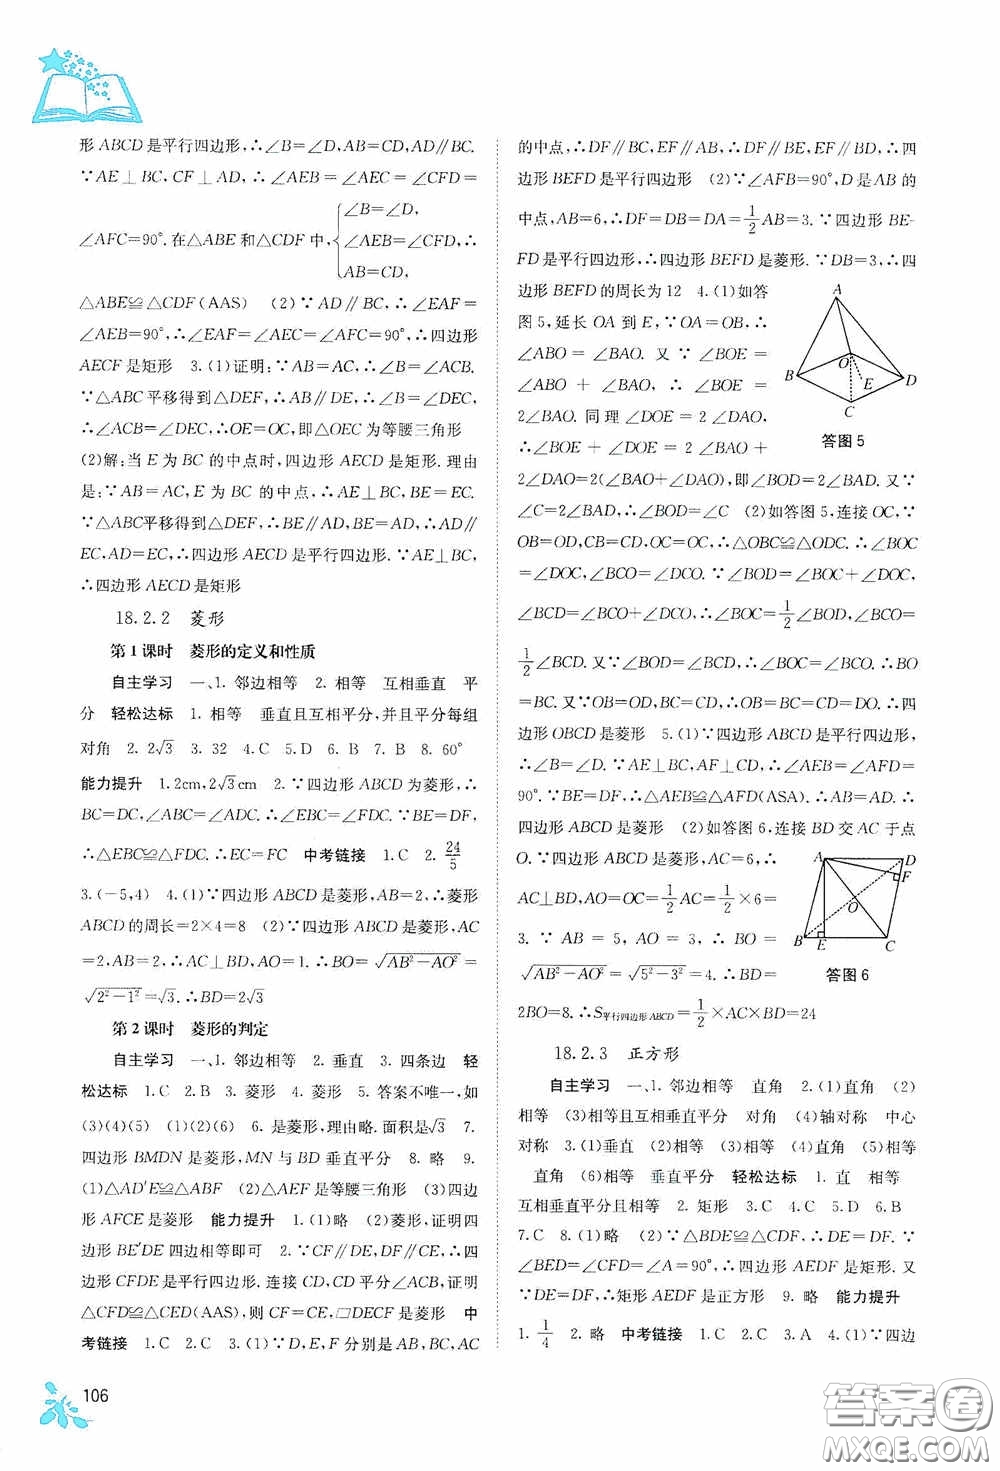 形 ABCD 是平行四边形,∴∠B=∠D,AB=CD,AD∥BC.
∵AE⊥BC,CF⊥AD,∴∠AEB=∠AEC=∠CFD=
∠AFC=90°.在△ABE 和△CDF 中,{∠B=∠D,
∠AEB=∠CFD,∴
AB=CD,
△ABE≌△CDF(AAS) (2)∵AD∥BC,∴∠EAF=
∠AEB=90°,∴∠EAF=∠AEC=∠AFC=90°,∴四边形
AECF 是矩形 3.(1)证明:∵AB=AC,∴∠B=∠ACB.
∵△ABC平移得到△DEF,∴AB∥DE,∴∠B=∠DEC,
∴∠ACB=∠DEC,∴OE=OC,即△OEC为等腰三角形
(2)解:当 E 为 BC 的中点时,四边形 AECD 是矩形.理由
是:∵AB=AC,E 为 BC 的中点,∴AE⊥BC,BE=EC.
∵△ABC平移得到△DEF,∴BE∥AD,BE=AD,∴AD∥
EC,AD=EC,∴四边形 AECD 是平行四边形.∵AE⊥BC,
∴四边形 AECD 是矩形
18.2.2 菱形
第 1 课时 菱形的定义和性质
自主学习 一、1.邻边相等 2.相等 互相垂直 平
分 轻松达标 1.相等 垂直且互相平分,并且平分每组
对角 2.2√3 3.32 4.C 5.D 6.B 7.B 8.60°
能力提升 1.2cm,2√3cm 2.∵四边形 ABCD 为菱形,∴
BC=DC,∠ABC=∠ADC.∴∠EBC=∠FDC.∵BE=DF,
∴△EBC≌△FDC.∴EC=FC 中考链接 1.C 2.24/5
3.(-5,4) 4.(1)∵四边形 ABCD 是菱形,AB=2,∴菱形
ABCD 的周长=2×4=8 (2)∵四边形 ABCD 是菱形,AC
=2,AB=2,∴AC⊥BD,AO=1.∴BO=√AB²-AO²=
√2²-1²=√3.∴BD=2√3
第 2 课时 菱形的判定
自主学习 一、1.邻边相等 2.垂直 3.四条边 轻
松达标 1.C 2.B 3.菱形 4.菱形 5.答案不唯一,如
(3)(4)(5) (1)(2)(6) 6.是菱形,理由略.面积是√3 7.
四边形 BMDN 是菱形,MN 与 BD 垂直平分 8.略 9.
(1)△AD′E≌△ABF (2)△AEF是等腰三角形 (3)四边
形 AFCE 是菱形 能力提升 1.(1)略 (2)菱形,证明四
边形 BE′DE 四边相等即可 2.∵CF∥DE,DF∥CE,∴四
边形 CFDE 是平行四边形.连接 CD,CD 平分∠ACB,证明
△CFD≌△CED(AAS),则 CF=CE,□DECF 是菱形 中
考链接 1.C 2.C 3.(1)∵D,E,F 分别是 AB,BC,AC
106
的中点,∴DF∥BC,EF∥AB,∴DF∥BE,EF∥BD,∴四
边形 BEFD 是平行四边形 (2)∵∠AFB=90°,D 是 AB 的
中点,AB=6,∴DF=DB=DA=1/2AB=3.∵四边形 BE-
FD 是平行四边形,∴四边形 BEFD 是菱形.∵DB=3,∴四
边形 BEFD 的周长为 12 4.(1)如答
图 5,延长 OA 到 E,∵OA=OB,∴
∠ABO=∠BAO.又∵∠BOE=
∠ABO+∠BAO,∴∠BOE=
2∠BAO.同理∠DOE=2∠DAO,
∴∠BOE+∠DOE=2∠BAO+
2∠DAO=2(∠BAO+∠DAO),即∠BOD=2∠BAD.又∵
∠C=2∠BAD,∴∠BOD=∠C (2)如答图 5,连接 OC,∵
OB=OD,CB=CD,OC=OC,∴△OBC≌△ODC.∴∠BOC
=∠DOC,∠BCO=∠DCO.∵∠BOD=∠BOC+∠DOC,
∠BCD=∠BCO+∠DCO,∴∠BOC=1/2∠BOD,∠BCO=
1/2∠BCD.又∵∠BOD=∠BCD,∴∠BOC=∠BCO.∴BO
=BC.又∵OB=OD,BC=CD,∴OB=BC=CD=DO.∴四
边形 OBCD 是菱形 5.(1)∵四边形 ABCD 是平行四边形,
∴∠B=∠D.∵AE⊥BC,AF⊥CD,∴∠AEB=∠AFD=
90°.∵BE=DF,∴△AEB≌△AFD(ASA).∴AB=AD.∴
四边形 ABCD 是菱形 (2)如答图 6,连接 BD 交 AC 于点
O.∵四边形 ABCD 是菱形,AC=6,∴
AC⊥BD,AO=OC=1/2AC=1/2×6=
3.∵AB=5,AO=3,∴BO=
√AB²-AO²=√5²-3²=4.∴BD=
2BO=8.∴S平行四边形ABCD=1/2×AC×BD=24
A
O
B
E
D
C
答图 5
A
D
F
O
B
E
C
答图 6
18.2.3 正方形
自主学习 一、1.邻边相等 直角 2.(1)直角 (2)
相等 (3)相等且互相垂直平分 对角 (4)轴对称 中心
对称 3.(1)垂直 (2)相等 (3)相等 (4)直角 (5)相等
直角 (6)相等 垂直平分 轻松达标 1.直 相等
互相垂直平分且相等 2.矩形 3.C 4.C 5.D 6.B
7.C 8.(1)略 (2)∵△BDE≌△CDF,∴DE=DF.∵
∠BED=∠CFD=∠A=90°,∴四边形 AEDF 是矩形.又
∵DE=DF,∴矩形 AEDF 是正方形 9.略 能力提升
1.1/4 2.略 中考链接 1.C 2.C 3.A 4.(1)∵四边
答案圈
MXQE.COM